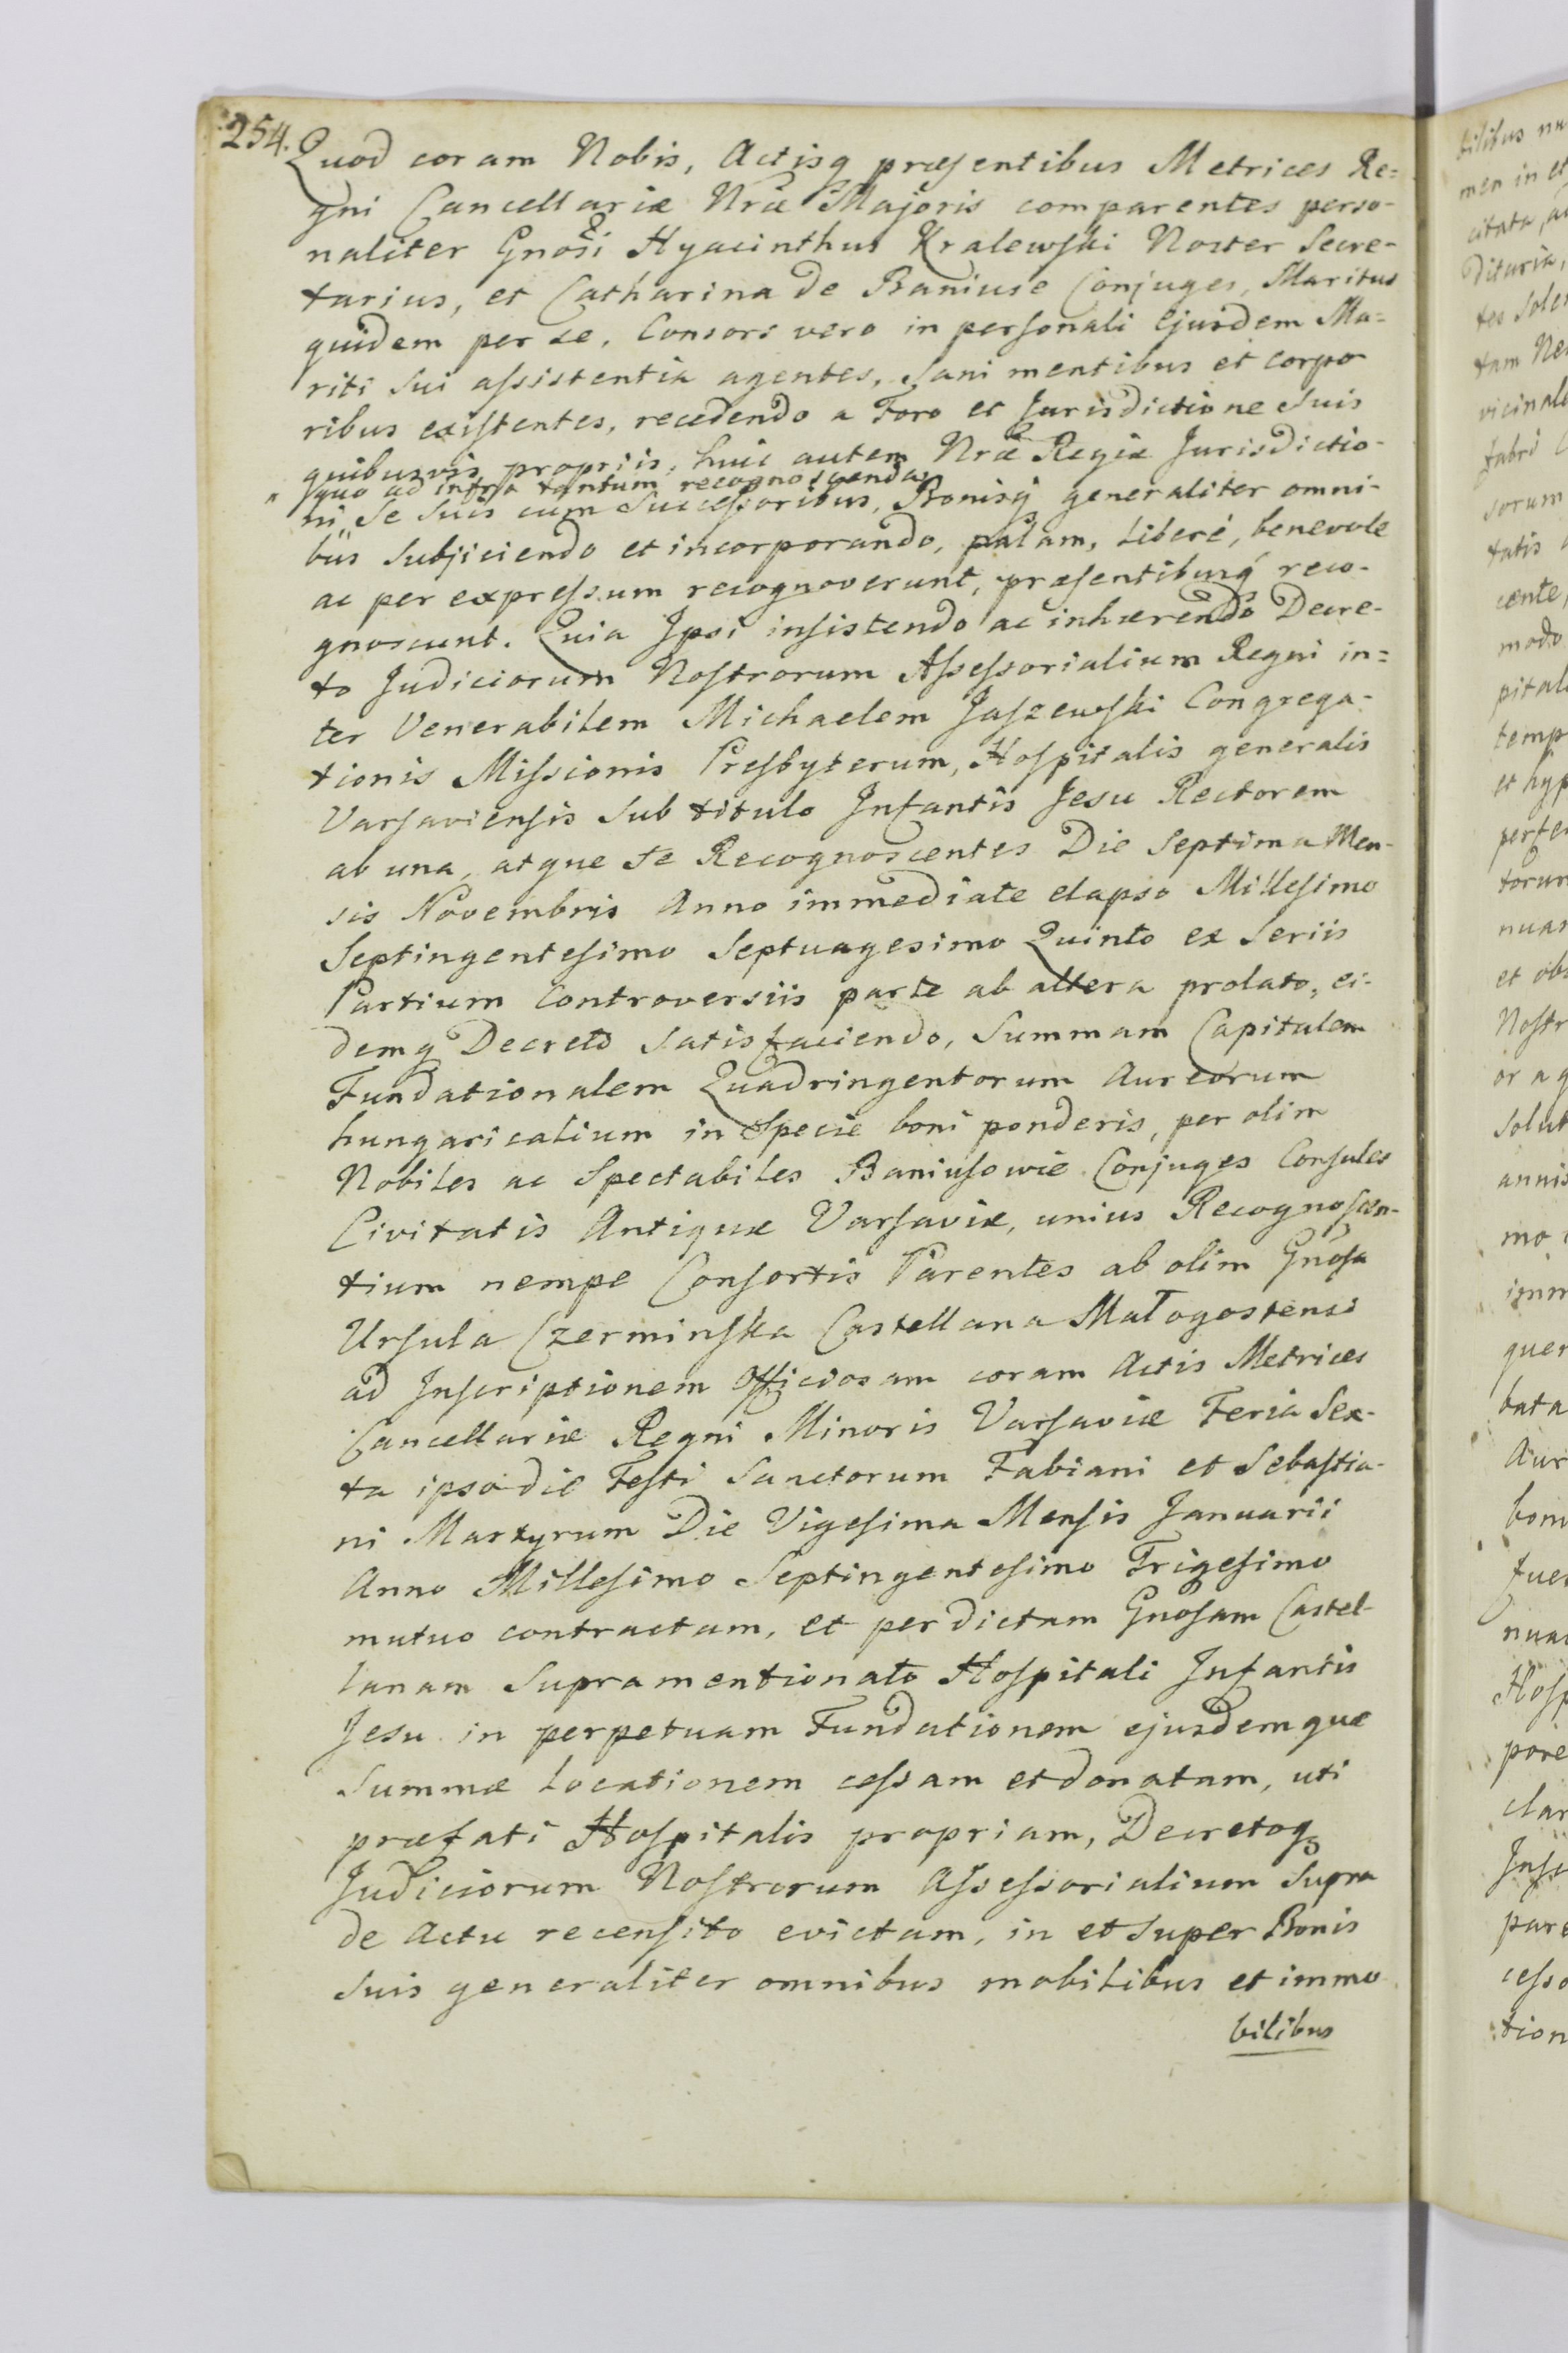 254.
Quod coram Nobis, Actisq præsentibus Metrices Re=
gni Cancellariæ Nræ Majoris comparentes perso-
naliter Gnosi Hyacinthus Kralewski Noster Secre-
tarius, et Catharina de Baniuse Conjuges, Maritus
quidem per se, Consors vero in personali Ejusdem Ma=
riti sui assistentia agentes, sani mentibus et corpo
ribus existentes, recedendo a Foro et Jurisdictione suis
quibusvis propriis, huic autem Nræ Regiæ Jurisdictio-
" quo ad infra tantum recognoscenda
ni, se suis cum Successoribus, Bonisq generaliter omni-
bus subjiciendo et incorporando, palam, liberé, benevole
ac per expressum recognoverunt, præsentibusq reco-
gnoscunt. Quia Ipsi insistendo ac inhærendo Decre-
to Judiciorum Nostrorum Assessorialium Regni in=
ter Venerabilem Michaelem Jaszewski Congrega-
tionis Missionis Presbyterum, Hospitalis generalis
Varsaviensis sub titulo Infantis Jesu Rectorem
ab una, atque se Recognoscentes Die Septima Men-
sis Novembris Anno immediate elapso Millesimo
Septingentesimo Septuagesimo Quinto ex Seriis
Partium Controversiis parte ab altera prolato, ei-
demq Decreto satisfaciendo, Summam Capitalem
Fundationalem Quadringentorum Aureorum
hungaricalium in Specie boni ponderis, per olim
Nobiles ac Spectabiles Baniusowie Conjuges Consules
Civitatis Antiquæ Varsaviæ, unius Recognoscen-
tium nempe Consortis Parentes ab olim Gnosa
Ursula Czerminska Castellana Małogostensi
ad Inscriptionem Officiosam coram Actis Metrices
Cancellariæ Regni Minoris Varsaviæ Feria Sex-
ta ipso die Festi Sanctorum Fabiani et Sebastia-
ni Martyrum Die Vigesima Mensis Januarii
Anno Millesimo Septingentesimo Trigesimo
mutuo contractam, et per dictam Gnosam Castel-
lanam Supramentionato Hospitali Infantis
Jesu in perpetuam Fundationem ejusdemque
Summæ locationem cessam et donatam, uti
præfati Hospitalis propriam, Decretoq
Judiciorum Nostrorum Assessorialium supra
de Actu recensito evictam, in et super Bonis
suis generaliter omnibus mobilibus et immo
bilibus